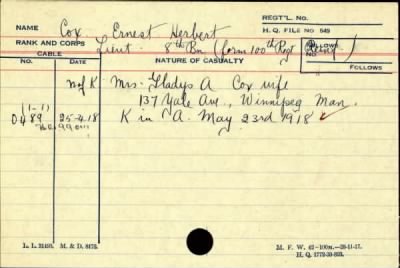 REGT'L. NO.
NAME Cox, Ernest Herbert
H. Q. FILE NO 649
RANK AND CORPS Lieut. 8th Bn (form 100th Regt
FOLLOWS
CABLE
NO. DATE
NATURE OF CASUALTY
NO.
FOLLOWS
n of K Mrs. Gladys A Cox wife
137 Yale Ave., Winnipeg Man.
(1-11)
0489 25-4-18 K in A. May 23rd 1918 ✓
L. L. 31450. M. & D. 8475.
M. F. W. 42-100m.-28-11-17.
H. Q. 1772-39-893.